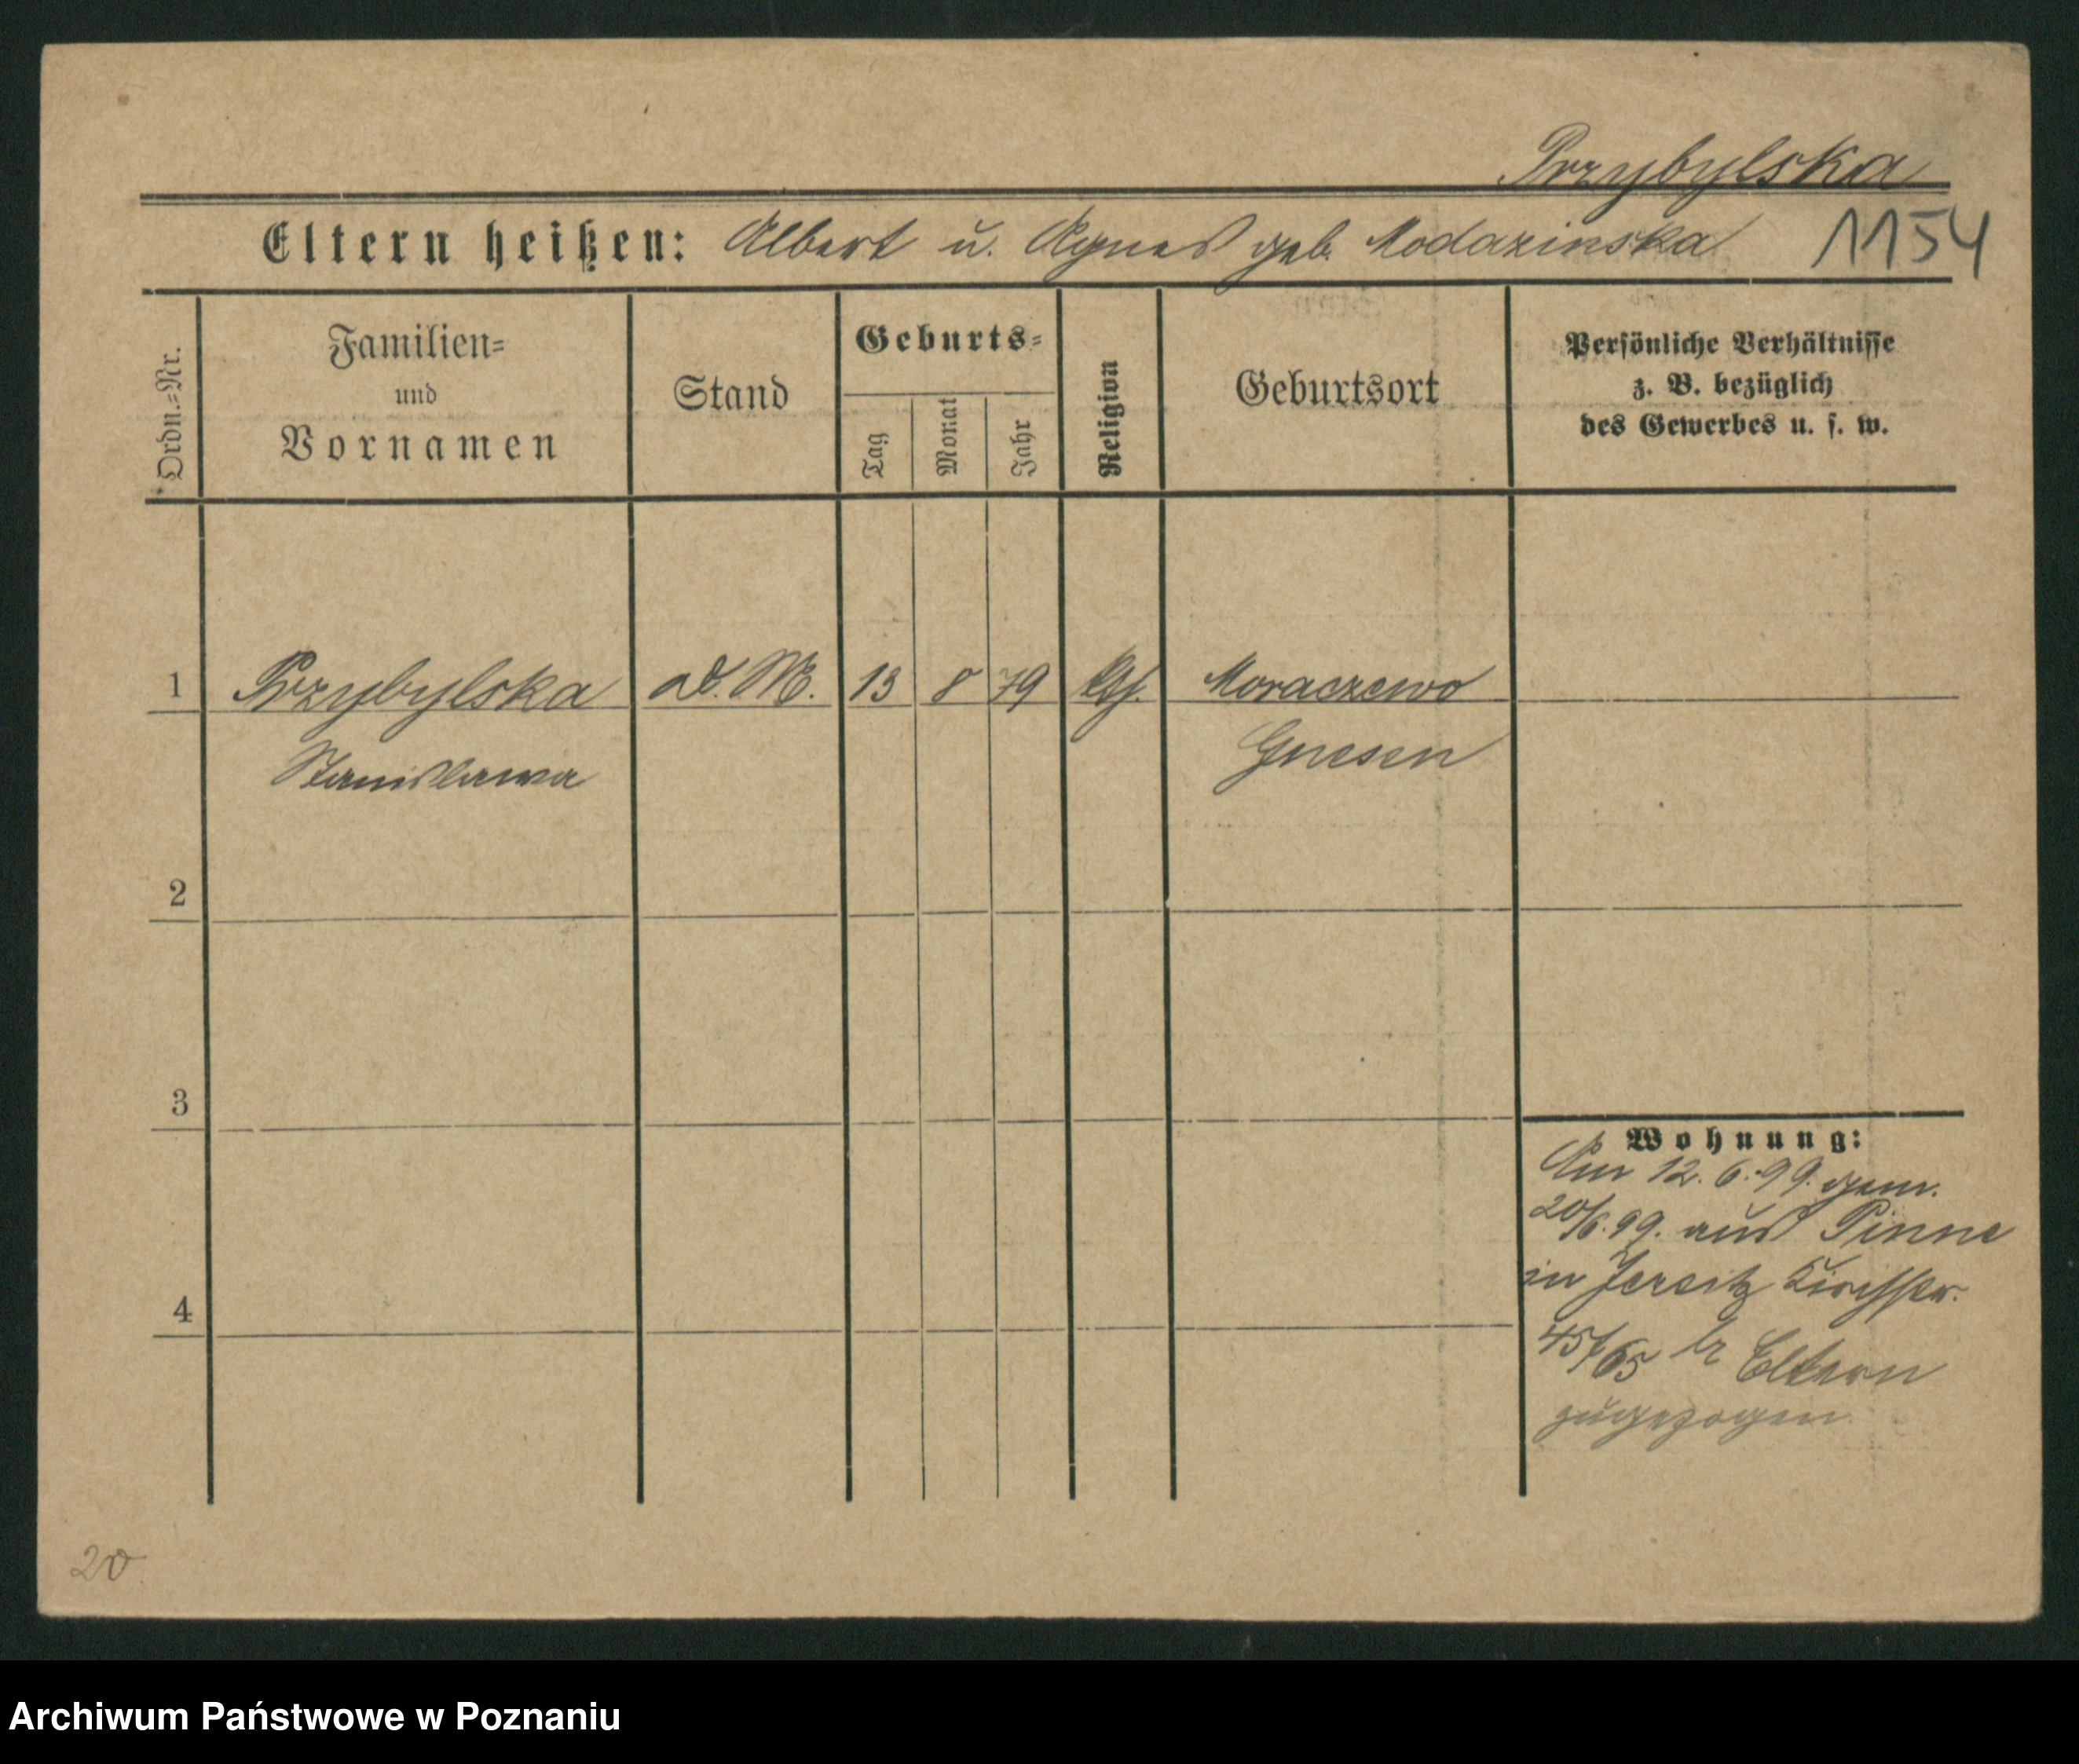 Przybylska
Eltern heißen: Albert u. Agnes geb. Modazinska 1154
Ordn.=Nr.
Familien=
und
Vornamen
Stand
Geburts=
Tag
Monat
Jahr
Religion
Geburtsort
Persönliche Verhältnisse
z. B. bezüglich
des Gewerbes u. s. w.
1 Przybylska 13 8 79 Moraczewo
Stanislawa Gnesen
2
3
4
Wohnung:
Am 12.6.99. gem.
20/6.99. aus Pinne
in Jersitz Kirchstr.
45/65 Eltern
zugezogen
20
Archiwum Państwowe w Poznaniu